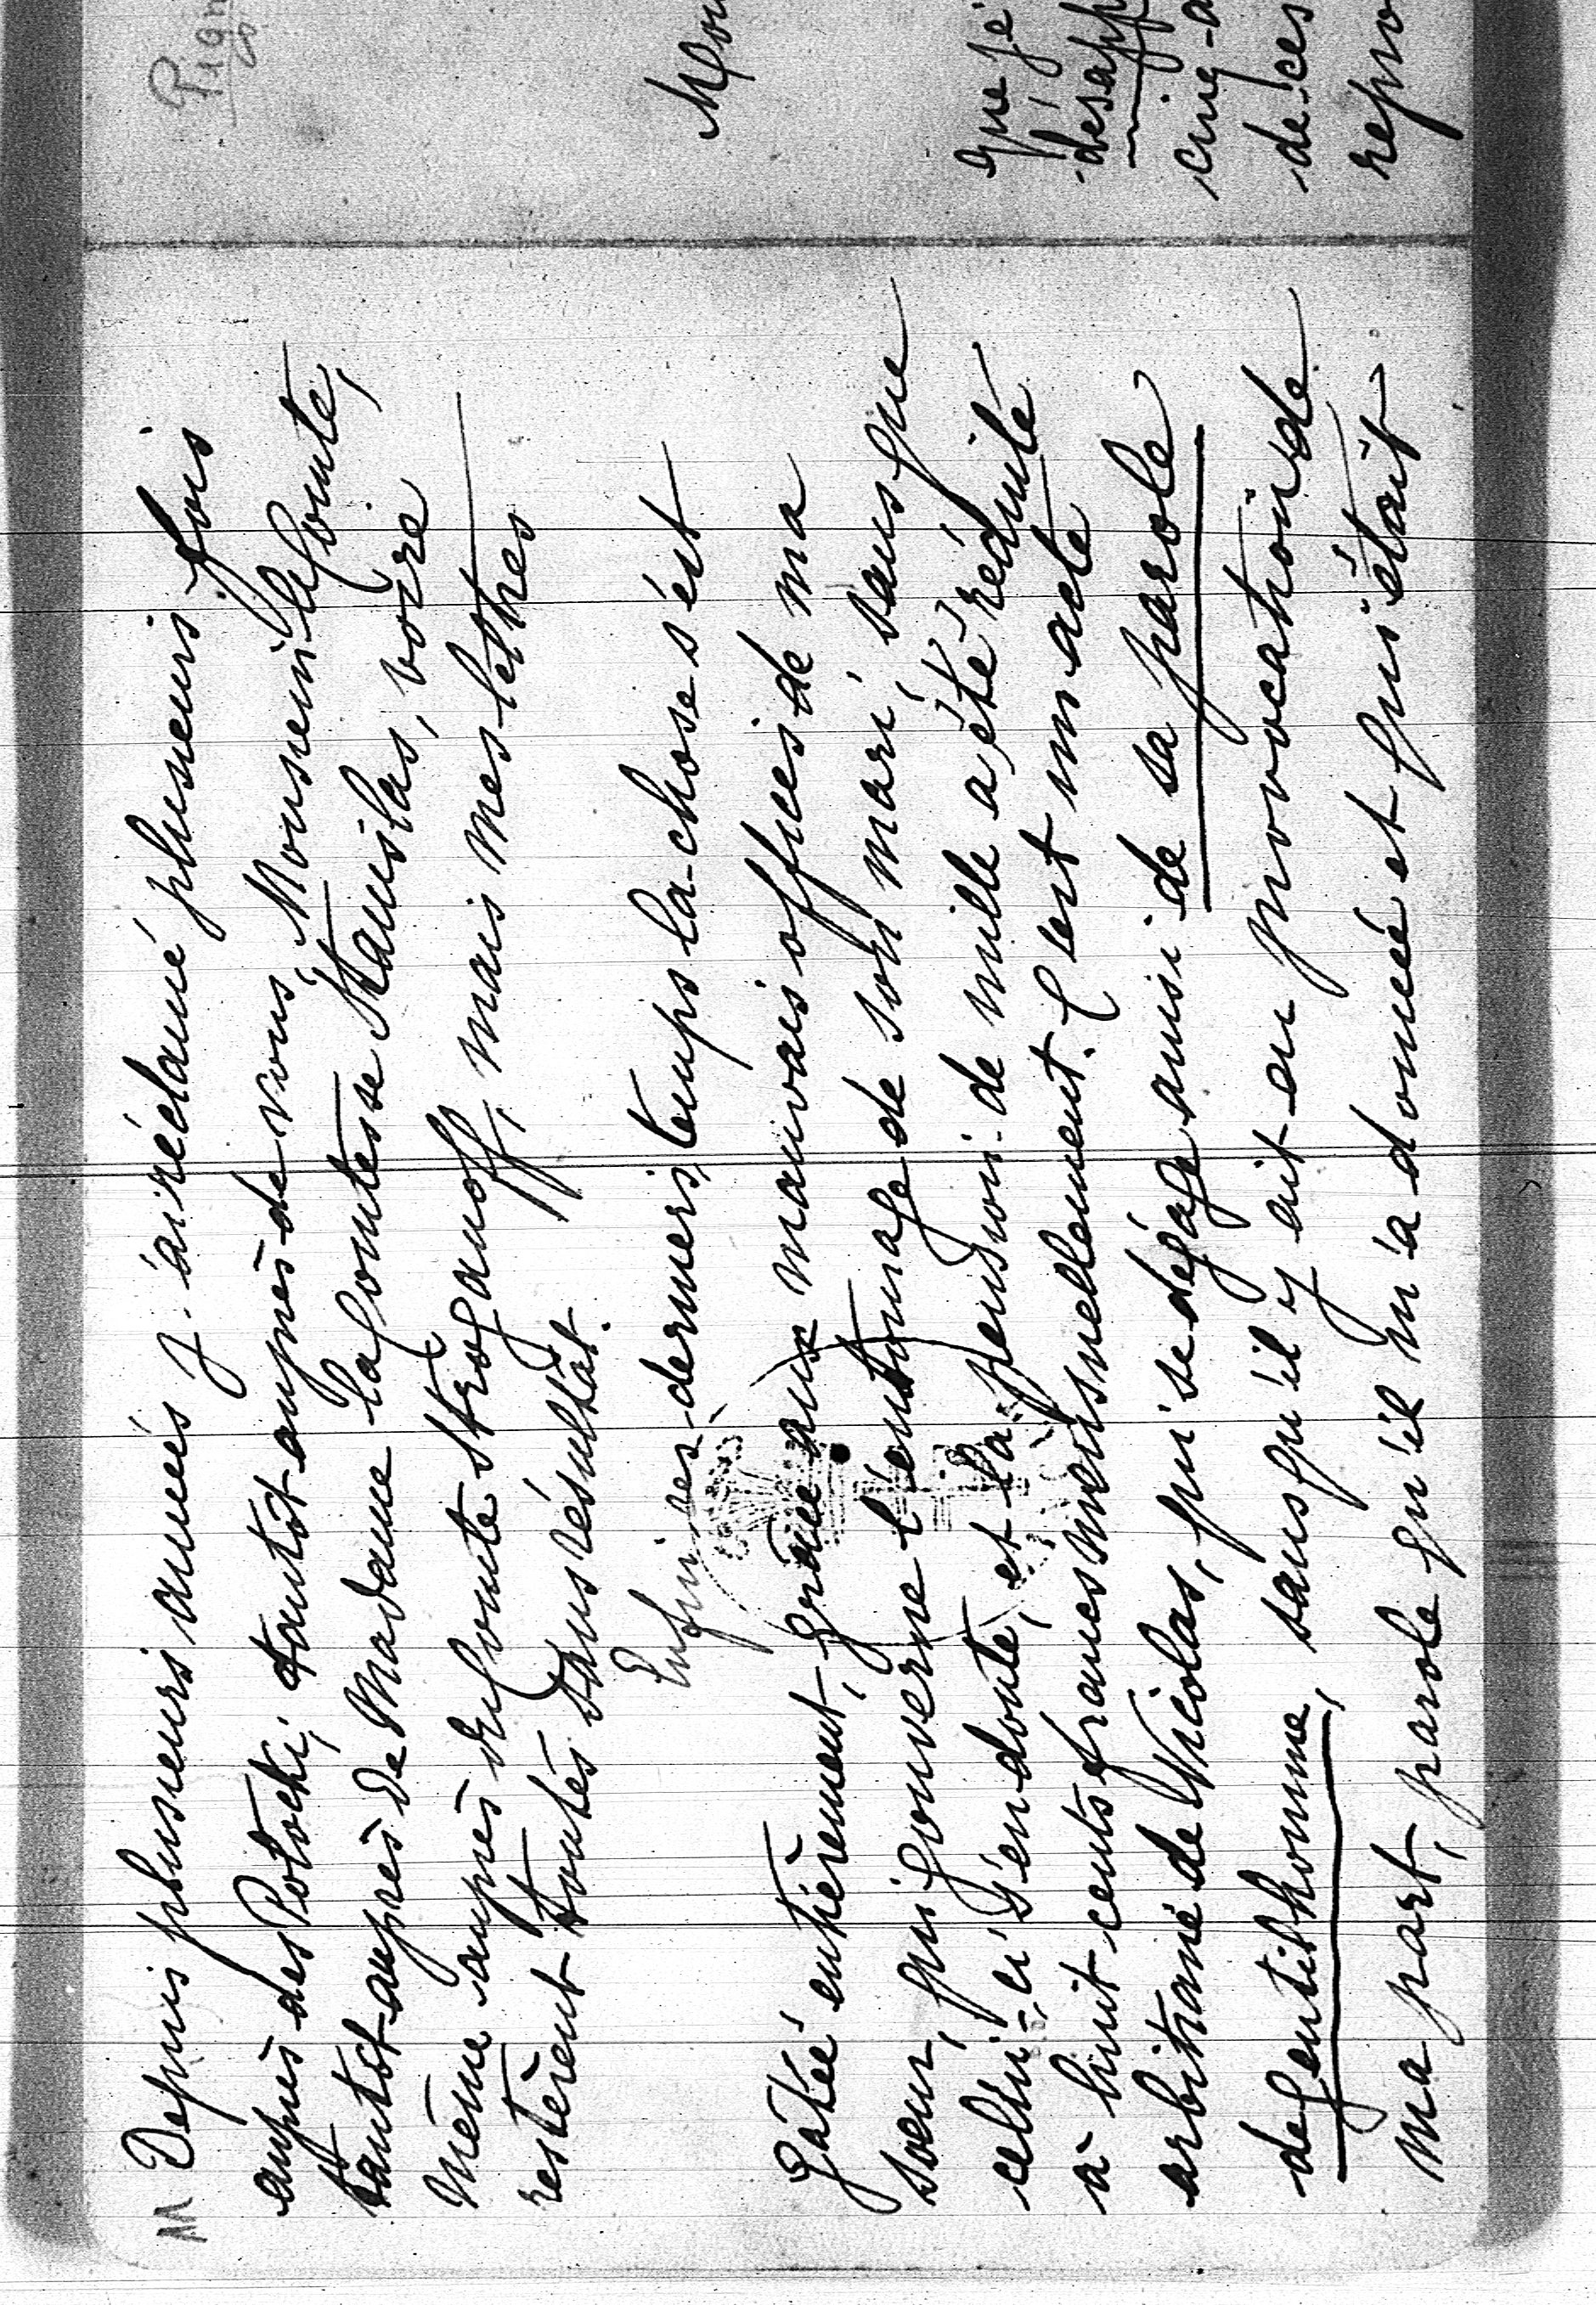 Depuis plusieurs années j'ai réclamé plusieurs fois
auprès des Potocki, tantôt auprès de vous, Monsieur le Comte,
tantôt auprès de Madame la Comtesse Stanislas, voire
même auprès du Comte Stroganoff, mais mes lettres
restèrent toutes sans résultat.
Enfin ces derniers temps la chose s'est
gâtée entièrement, grâce aux mauvais offices de ma
soeur, qui gouverne l'entourage de son mari, sans que
celui-ci s'en doute, et la pension de mille a été réduite
à huit cents francs mensuellement. C'est un acte
arbitraire de Nicolas, qui se dégage ainsi de sa parole
de gentilhomme, sans qu'il y ait eu provocation de
ma part, parole qu'il m'a donnée et qui était
que je
désapp
cinq-a
de ces
repro